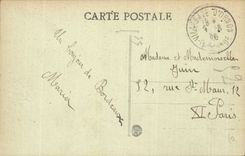 CARTE POSTALE
Un bonjour de Bordeaux
Maria
Madame et Mademoiselle
Juin
12, rue St Maur, 12
XI Paris